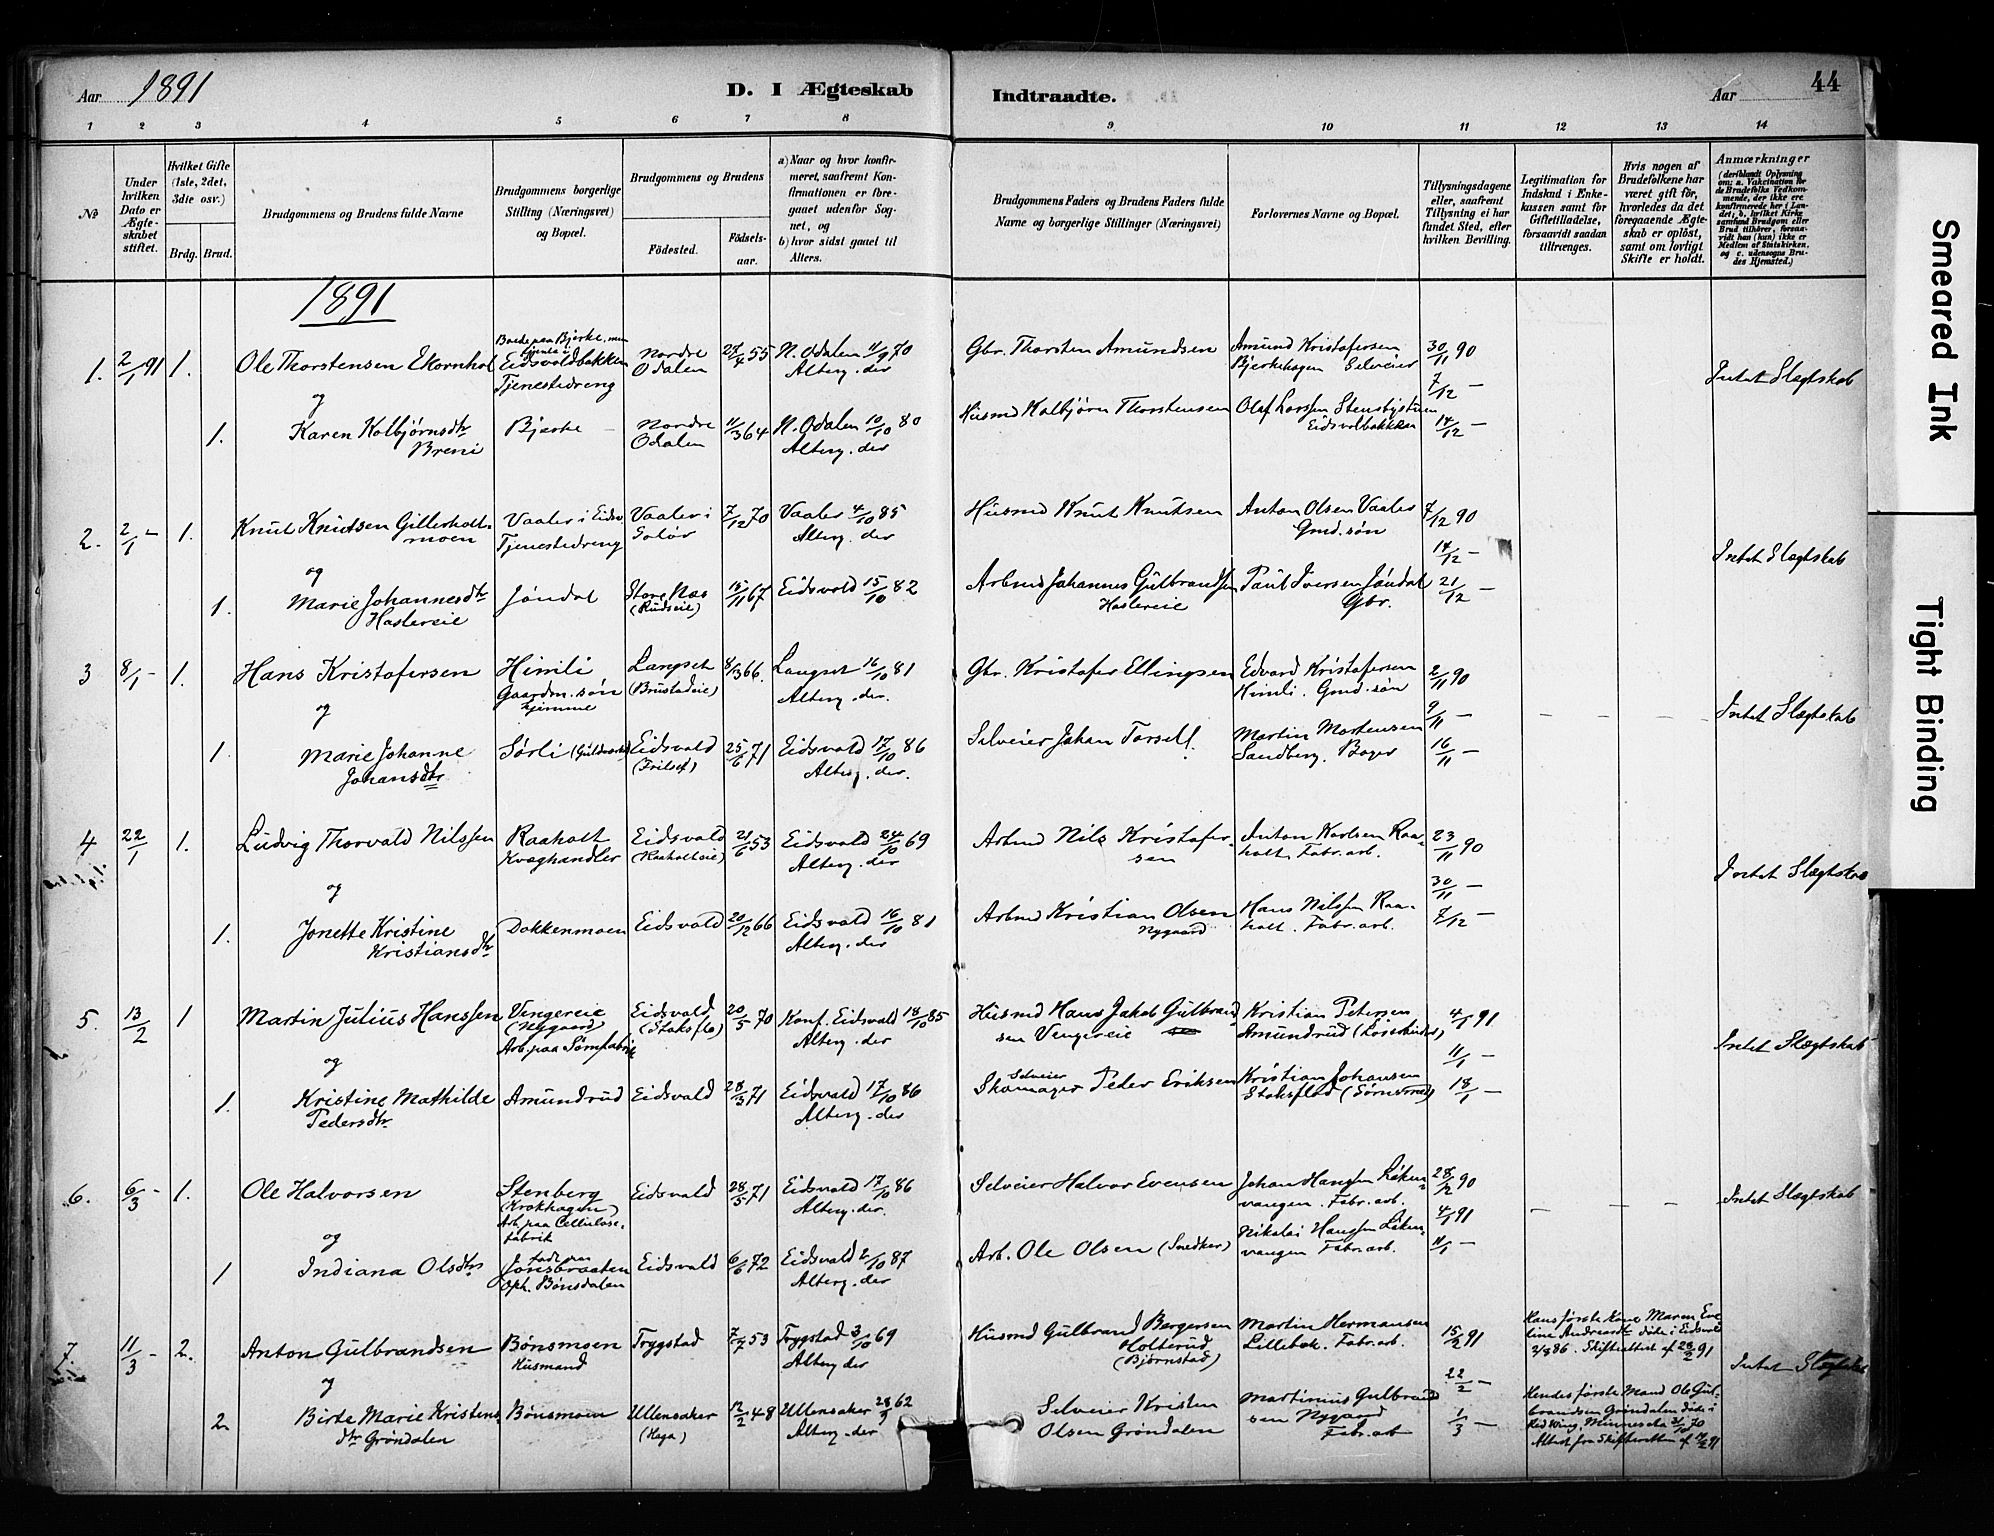 Aar 1891
D. I Ægteskab Indtraadte.
Aar
44
1 2 3 4 5 6 7 8 9 10 11 12 13 14
No
Under hvilken Dato er Ægteskabet stiftet.
Hvilket Gifte (1ste, 2det, 3die osv.)
Brdg. Brud.
Brudgommens og Brudens fulde Navne
Brudgommens borgerlige Stilling (Næringsvei) og Bopæl.
Brudgommens og Brudens
Fødested.
Fødselsaar.
a) Naar og hvor konfirmeret, saafremt Konfirmationen er foregaaet udenfor Sognet, og
b) hvor sidst gaaet til Alters.
Brudgommens Faders og Brudens Faders fulde Navne og borgerlige Stillinger (Næringsvei)
Forlovernes Navne og Bopæl.
Tillysningsdagene eller, saafremt Tillysning ei har fundet Sted, efter hvilken Bevilling.
Legitimation for Indskud i Enkekassen samt for Giftetilladelse, forsaavidt saadan tiltrænges.
Hvis nogen af Brudefolkene har været gift før, hvorledes da det foregaaende Ægteskab er opløst, samt om lovligt Skifte er holdt.
Anmærkninger (deriblandt Oplysning om: a. Vakcination for de Brudefolks Vedkommende, der ikke ere konfirmerede her i Landet; b. hvilket Kirkesamfund Brudgom eller Brud tilhører, forsaavidt han (hun) ikke er Medlem af Statskirken, og c. udensogns Brudes Hjemsted.)
1891
1. 2/1 91 1. Ole Thorstensen Ekornhol
Boede paa Bjerke, men
Eidsvoldbakken
Tjenestedreng
Nordre Odalen 27/4 55 N. Odalen 11/9 70
Alterg. der
Gbr. Thorsten Amundsen
Amund Kristofersen
Bjerkehagen Selveier
30/11 90
7/12 —
14/12 —
Intet Slægtskab
og
1. Karen Kolbjørnsdtr
Breni
Bjerke
Nordre Odalen 11/3 64 N. Odalen 10/10 80
Alterg. der
Husmd Kolbjørn Thorstensen
Olaf Larssen Stensbystuen
Eidsvolbakken
2. 2/1 — 1. Knut Knutsen Gillerholtmoen
Vaaler i Eidsv.
Tjenestedreng
Vaaler i Solør 7/12 70 Vaaler 4/10 85
Alterg. der
Husmd Knut Knutsen
Anton Olsen Vaaler
Gmd. søn
7/12 90
14/12 —
21/12 —
Intet Slægtskab
og
1. Marie Johannesdtr
Haslereie
Jøndal
Store Næs
(Rudseie)
15/11 67 Eidsvold 15/10 82
Arbmd Johannes Gulbrandsen
Haslereie
Paul Iversen Jøndal
Gbr.
3 8/1 — 1. Hans Kristofersen
Himli
Gaardm. søn
hjemme
Langset
(Brustadeie)
8/13 66. Langset 16/10 81
Alterg. der.
Gbr. Kristofer Ellingsen
Edvard Kristofersen
Himli. Gmd. søn
2/11 90
9/11 —
16/11 —
— — — Intet Slægtskab
og
1. Marie Johanne
Johansdtr
Sørli (Guldværket)
Eidsvold
25/6 71 Eidsvold 17/10 86
Alterg. der.
Selveier Johan Torsell.
Martin Mortensen
Sandberg. Bager
4 22/1 1. Ludvig Thorvald Nilssen
Raaholt
Kvæghandler
Eidsvold
(Raaholteie)
21/6 53 Eidsvold 24/10 69
Alterg. der
Arbmd Nils Kristofersen
Anton Karlsen Raaholt. Fabr. arb.
23/11 90
30/11 —
7/12 —
Intet Slægtskab
og
1. Jonette Kristine
Kristiansdtr
Dokkenmoen
Eidsvold 20/12 66 Eidsvold 16/10 81
Alterg. der
Arbmd Kristian Olsen
Nygaard
Hans Nilssen Raaholt. Fabr. arb.
5. 13/2 1 Martin Julius Hanssen
Vengereie
(Nygaard)
Arb. paa Sømfabrik
Eidsvold
(Staksflo)
20/5 70 Konf. Eidsvold 18/10 85
Alterg. der
Husmd Hans Jakob Gulbrandsen Vengereie
Kristian Petersen
Amundrud
4/1 91
11/1 —
18/1 —
Intet Slægtskab
og
1. Kristine Mathilde
Pedersdtr
Amundrud
Eidsvold 28/3 71 Eidsvold 17/10 86
Alterg. der
Selveier
Skomager Peder Eriksen
Kristian Johansen
Staksflod
6. 6/3 — 1. Ole Halvorsen
Stenberg
(Krokhagen)
Arb. paa Cellulosefabrik
Eidsvold 28/5 71 Eidsvold 17/10 86
Alterg. der.
Selveier Halvor Evensen
Johan Hanssen Løkenvangen. Fabr. arb.
28/12 90
4/1 91
11/1 —
— — — Intet Slægtskab
og
1 Indiana Olsdtr
født paa
Jønsbraaten
Oph. Bønsdalen
Eidsvold 6/6 72 Eidsvold 2/10 87
Alterg. der
Arb. Ole Olsen (Snedker)
Nikolai Hanssen Løkenvangen Fabr. arb.
7. 11/3 — 2. Anton Gulbrandsen
Bønsmoen
Husmand
Trygstad 7/7 53 Trygstad 3/10 69
Alterg der
Husmd Gulbrand Bergersen
Holterud
(Bjørnstad)
Martin Hermansen
Lillebæk. Fabr. arb.
15/2 91
22/2 —
1/3 —
Hans første Kone Maren Eveline Andreasdtr døde i Eidsvold
2/8 86. Skifteattest af 28/2 91
Intet Slægtskab
og
2 Birte Marie Kristensdtr Grøndalen
Bønsmoen
Ullensaker
(Hega)
12/2 48 Ullensaker 28/9 62
Alterg. der
Selveier Kristen
Olsen Grøndalen
Martinius Gulbrandsen Nygaard
Fabr. arb
Hendes første Mand Ole Gulbrandsen Grøndalen døde i
Red Wing, Minnesota 31/10 70
Attest fra Skifteretten af 14/2 91
Smeared Ink
Tight Binding